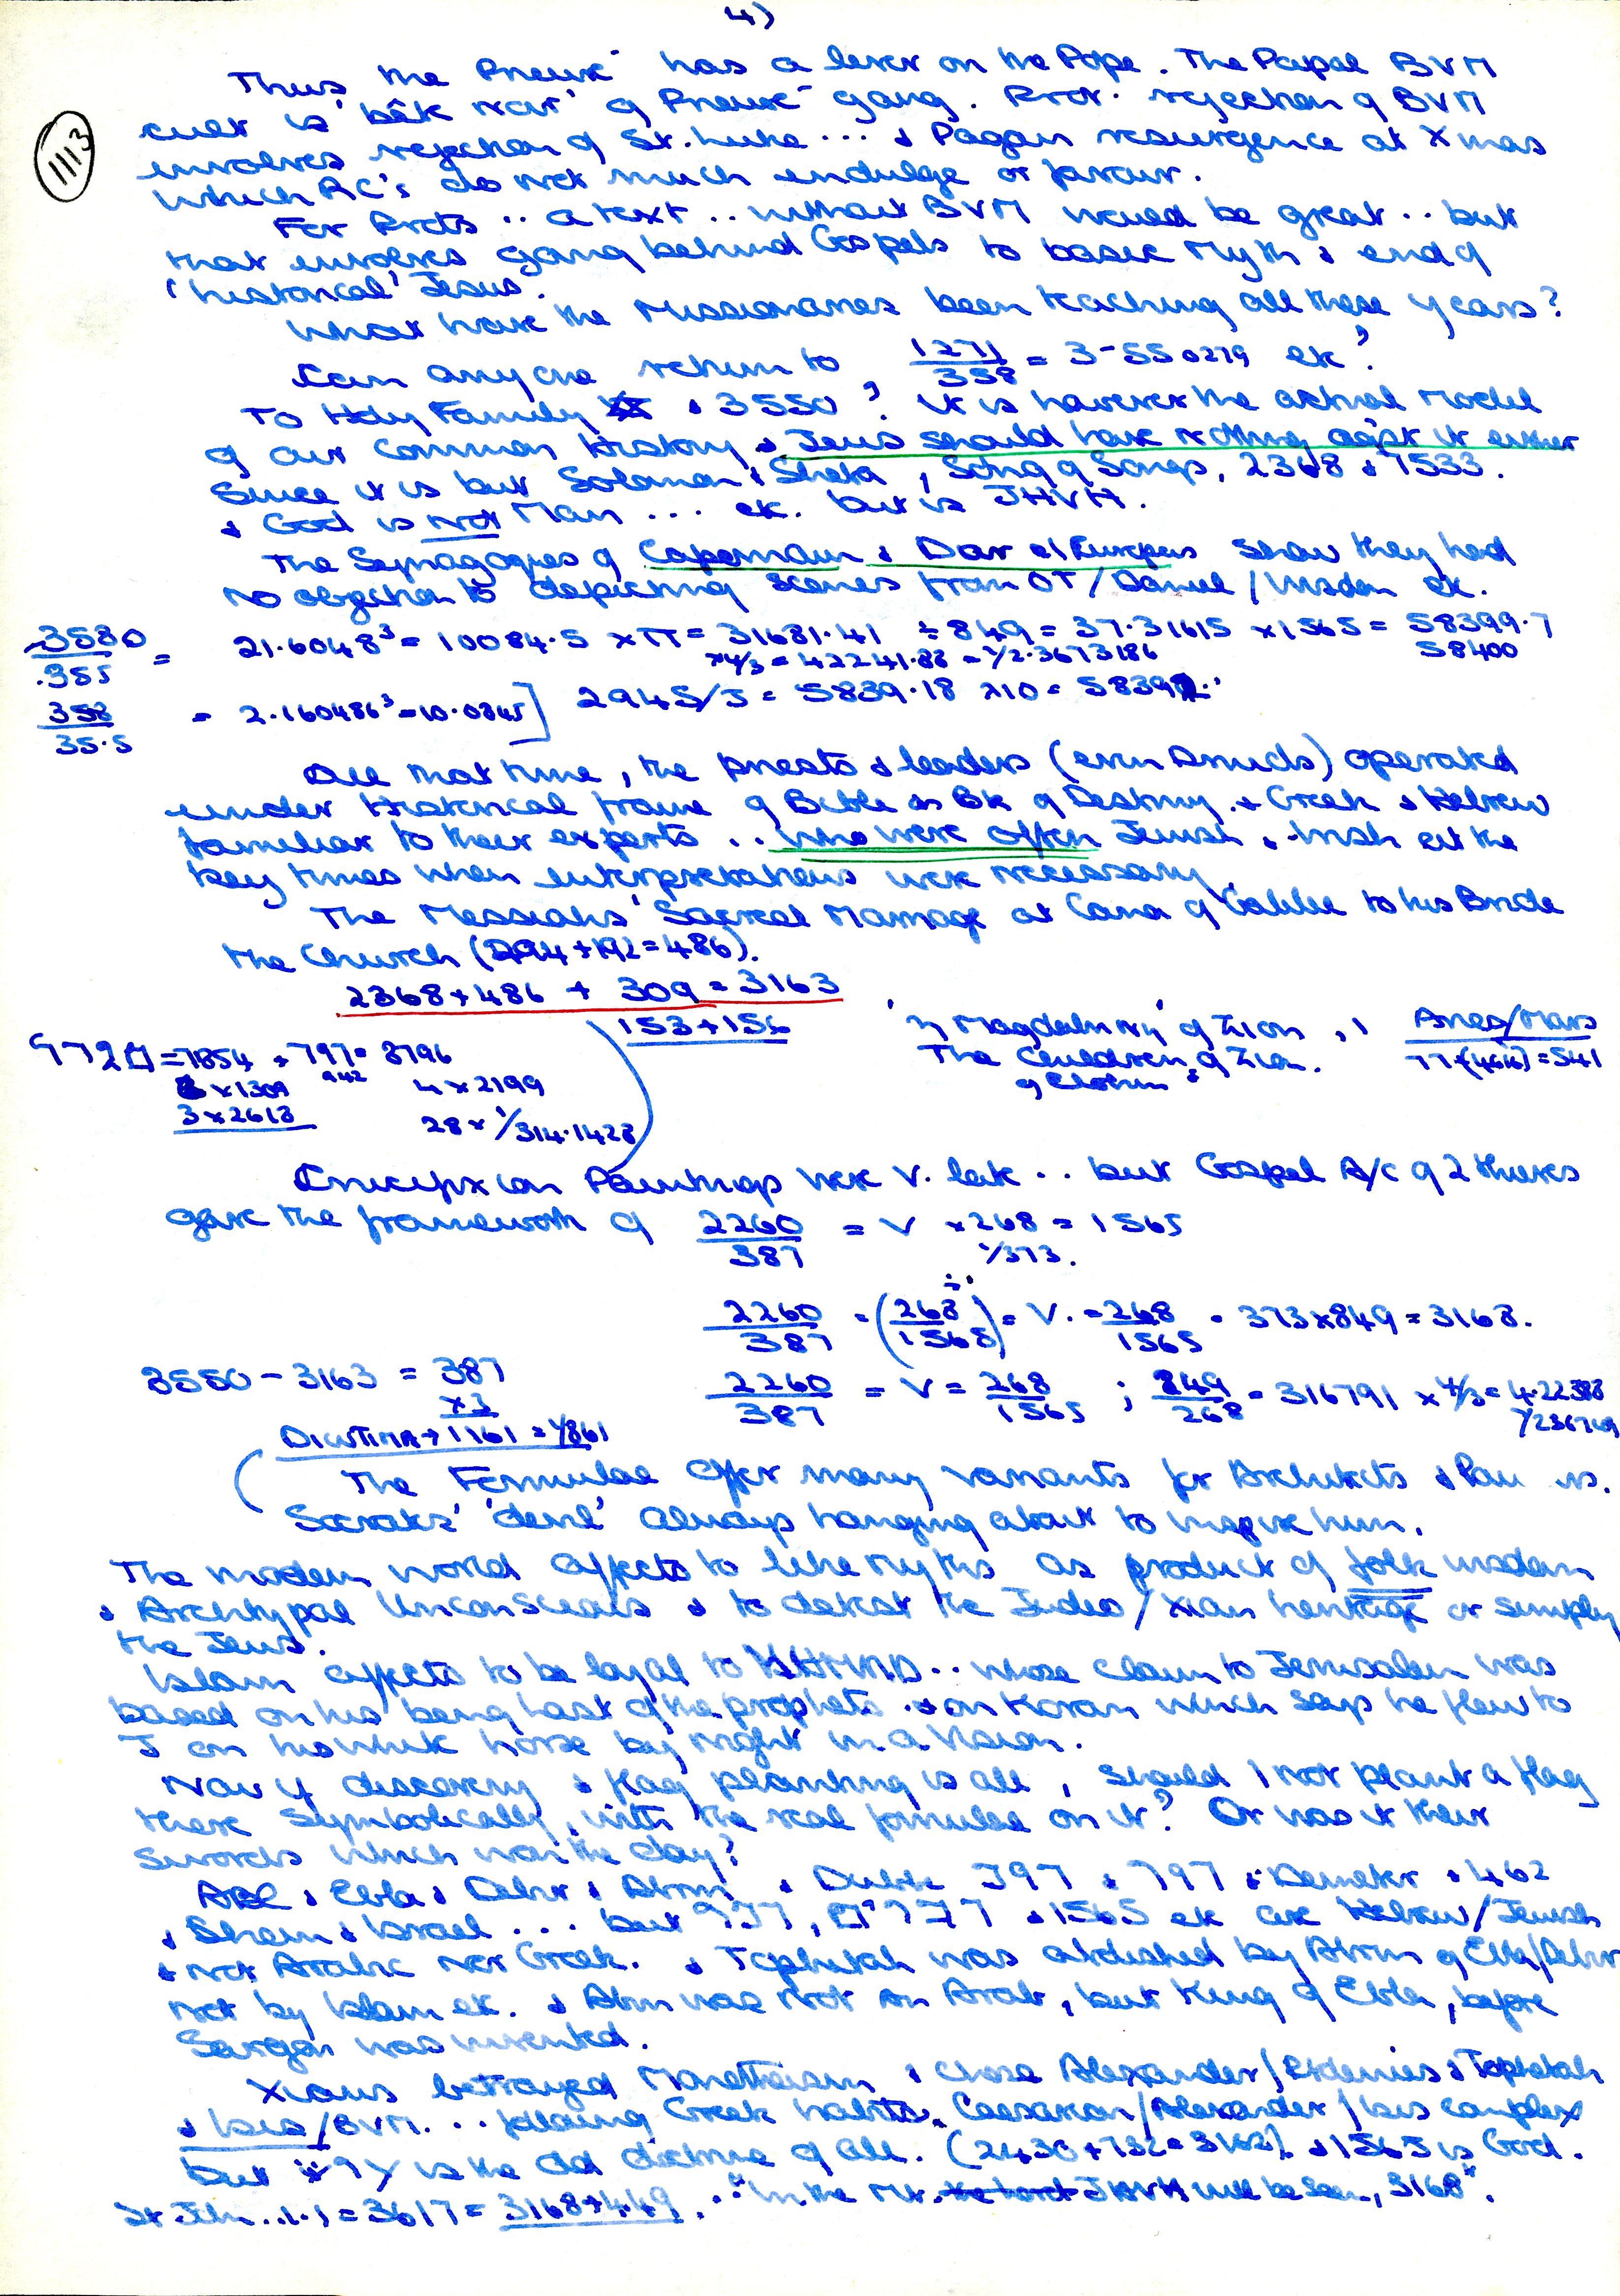 4)
1113
Thus, the Prieuré has a lever on the Pope. The Papal BVM
cult is 'bête noir' of Prieuré gang. Prot. rejection of BVM
involves rejection of St. Luke ... & Pagan resurgence at Xmas
which RC's do not much indulge or favour.
For Prots .. a text .. without BVM would be great .. but
that involves going behind Gospels to basic Myth & end of
'historical' Jesus.
What have the Missionaries been teaching all these years?
Can anyone return to 1271/358 = 3-550279 etc?
To Holy Family & 3550? It is however the actual Model
of our Common History & Jews should have nothing agst it either
Since it is but Solomon & Sheba, Song of Songs, 2368 & 7533.
& God is not Man ... etc. but is JHVH.
The Synagogues of Capernaum & Dora el Europus show they had
no objection to depicting scenes from OT / Daniel / Wisdom etc.
3580/.355 = 21.6048³ = 10084.5 × π = 31681.41 ÷ 849 = 37.31615 × 1565 = 58399.7
× 4/3 = 42241.88 = 1/2.3673186
58400
358/35.5 = 2.160486³ = 10.0845] 2945/J = 5839.18 × 10 = 58391.
All that time, the priests & leaders (even Druids) operated
under Historical frame of Bible as Bk of Destiny. & Greek & Hebrew
familiar to their experts .. who were often Jewish & Irish at the
key times when interpretations were necessary.
The Messiahs' Sacred Marriage at Cana of Galilee to his Bride
the Church (294 + 192 = 486).
2368 + 486 + 309 = 3163
153 + 156
'η Magdalini' of Zion, 1
The Children of Zion.
Ares/Mars
77 + (464) = 541
= 7854 + 797 = 8796
942
6 × 1309
3 × 2618
4 × 2199
28 × 1/314.1428
Crucifixion Paintings were v. late .. but Gospel A/c of 2 thieves
gave the framework of 2260/387 = V × 268 = 1565
1/373.
2260/387 = (268/1565) = V. = 268/1565 = 373 × 849 = 3168.
3550 - 3163 = 387
×3
2260/387 = V = 268/1565 ; 849/268 = 316791 × 4/3 = 4.22388
1/236749
Diotima → 1161 = 1/861
(The Formulae offer many variants for Architects & Pau vs.
Socrates' 'devil' always hanging about to inspire him.
The modern world affects to like myths as product of folk wisdom
& Archetypal Unconscious & to detest the Judeo/Xian heritage or simply
the Jews.
Islam affects to be loyal to .. whose claim to Jerusalem was
based on his being last of the prophets & on Koran which says he flew to
J on his white horse by night in a Vision.
Now if discovery & flag planting is all, should I not plant a flag
there symbolically, with the real formulae on it? Or was it their
swords which won the day?
& Ebla & & & 797 & 797 & Demeter & 462
& Shem & Israel ... but & 1565 etc are Hebrew/Jewish
& not Arabic nor Greek. & Tophetah was abolished by Abrm of Ebla/Debir
not by Islam etc. & Abrm was not an Arab, but King of Ebla, before
Sargon was invented.
Xians betrayed Monotheism & chose Alexander/Ptolemies & Tophetah
& Isis/BVM. .. following Greek habits. Caesarion/Alexander/Isis complex
but is the old doctrine of all. (2430 + 732 = 3162) & 1565 is God.
St John ..1.1 = 3617 = 3168 + 449. .. "In the Mt. JHVH will be seen, 3168".